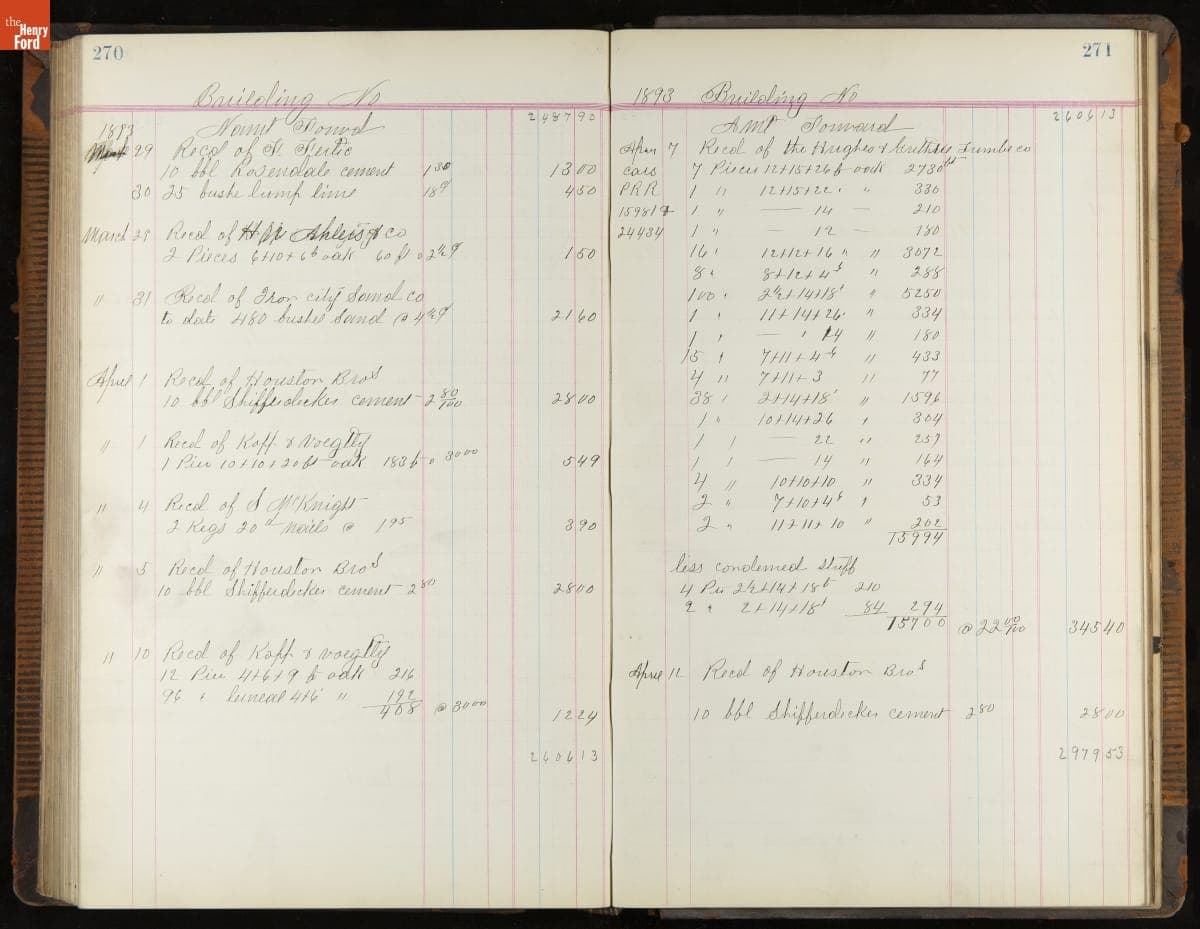 the Henry Ford
270
Building No
1893 Amt Forwd 2487 90
29 Recd of
10 bbl Rosendale cement 1 30 13 00
30 25 bushe lump lime 18¢ 4 50
March 29 Recd of & co
2 Pieces 6+10+6 ft oak 60 ft @ 2½¢ 1 50
" 31 Recd of Iron city Sand co
to date 480 bushe Sand @ 4½¢ 21 60
April 1 Recd of Houston Bros
10 bbl Shifferdicker cement 2 80/100 28 00
" 1 Recd of Kopp & Voegtly
1 Piec 10+10+20 ft oak 183 ft @ 30 00 5 49
" 4 Recd of S McKnight
2 Kegs 20d nails @ 1 95 3 90
" 5 Recd of Houston Bros
10 bbl Shifferdicker cement 2 80 28 00
" 10 Recd of Kopp & Voegtly
12 Piec 4+6+9 ft oak 216
96 " lineal 4+6 " 192
408 @ 30 00 12 24
2606 13
271
1893 Building No
Amt Forward 2606 13
April 7 Recd of the Hughes & Lumbe co
cars 7 Pieces 12+15+26 ft oak 2730 ft
PRR 1 " 12+15+22 " " 330
159819 1 " — 14 — 210
24434 1 " — 12 — 180
16 " 12+12+16 " " 3072
8 " 8+12+4 " 288
100 " 2½+14+18 " 5250
1 " 11+14+26 " 334
1 " — " 14 " 180
15 " 7+11+4 " 433
4 " 7+11+3 " 77
38 " 2+14+18 " 1596
1 " 10+14+26 " 304
1 " — 22 " 257
1 " — 14 " 164
4 " 10+10+10 " 334
2 " 7+10+4 " 53
2 " 11+11+10 " 202
15994
less condemned Stuff
4 Piec 2½+14+18 ft 210
2 " 2+14+18 84 294
15700 @ 22 00/100 345 40
April 12 Recd of Houston Bros
10 bbl Shifferdicker cement 2 80 28 00
2979 53